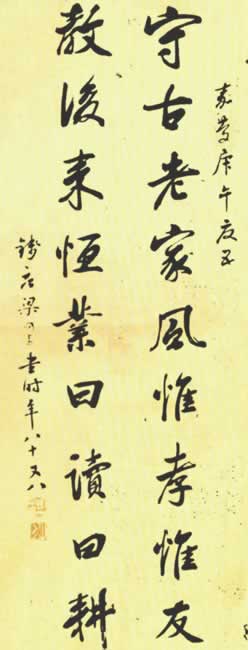 嘉慶庚午夏五
守古老家風惟孝惟友
教後來恒業曰讀曰耕
錢唐梁同書時年八十又八